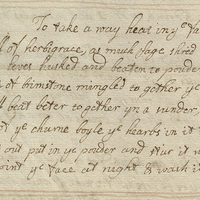 To take a way heat in yᵉ fa
ll of herbigrace, as much sage three
lovet searked and beaten to pouder
of brimstone mingled to gether ye
ll beat beter to gether yn a vunder
yᵉ churne boyle yᵉ hearbs in it
out put in yᵉ pouder and stur it
oint yᵉ face at night & wash it